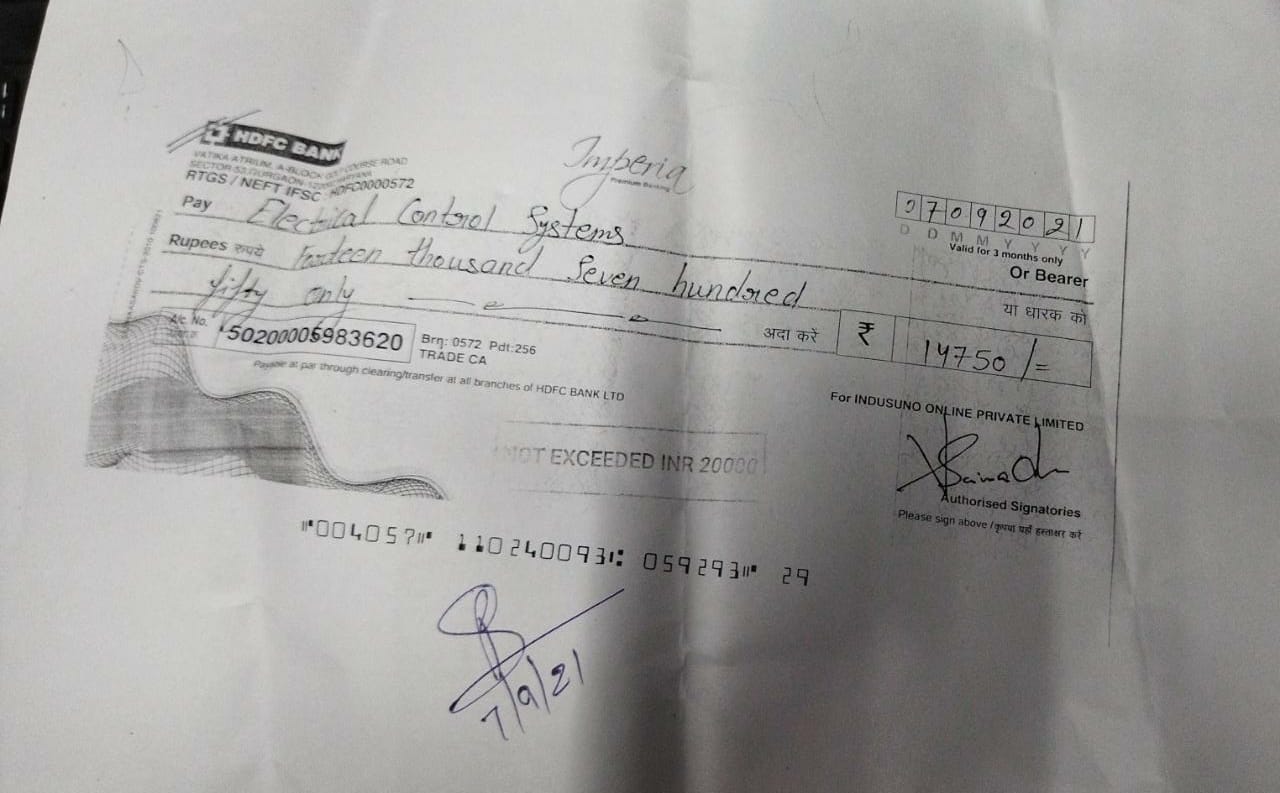 HDFC BANK
VATIKA ATRIUM, A-BLOCK GOLF COURSE ROAD
SECTOR-53, GURGAON HARYANA
RTGS / NEFT IFSC : HDFC0000572
Imperia
Premium Banking
07092021
D D M M Y Y Y Y
Valid for 3 months only
Pay Electrical Control Systems Or Bearer
Rupees रुपये Fourteen thousand Seven hundred या धारक को
fifty only अदा करें ₹ 14750/=
A/c No. 50200005983620 Brn: 0572 Pdt:256
TRADE CA
Payable at par through clearing/transfer at all branches of HDFC BANK LTD
For INDUSUNO ONLINE PRIVATE LIMITED
NOT EXCEEDED INR 20000
Authorised Signatories
Please sign above / कृपया यहाँ हस्ताक्षर करें
⑈004057⑈ 110240093⑆ 059293⑈ 29
7/9/21